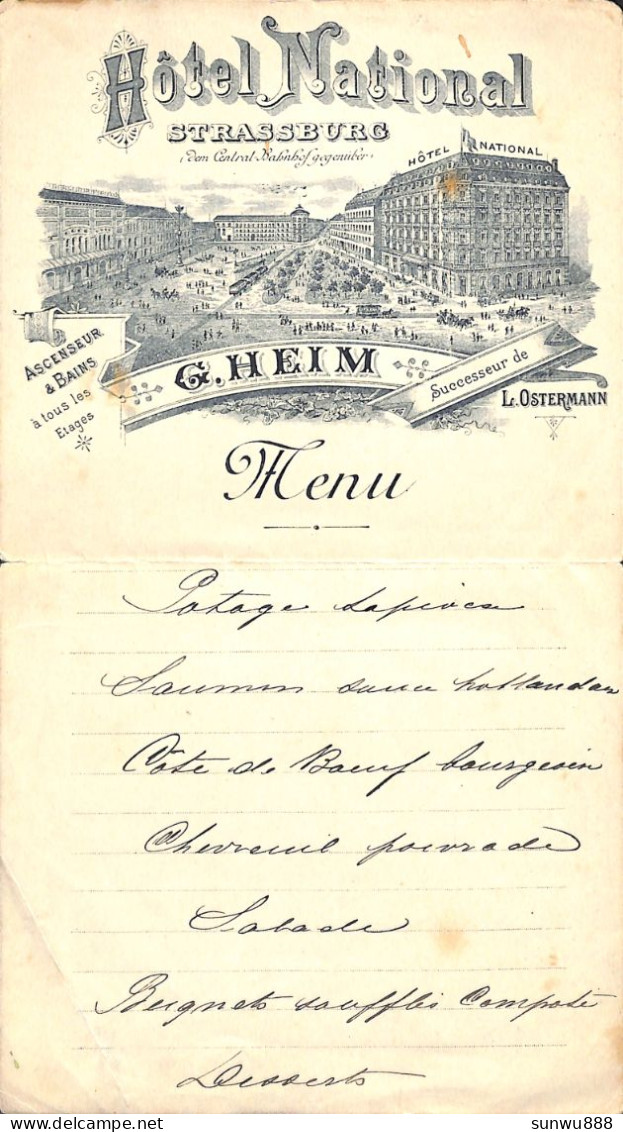 Hôtel National
STRASSBURG
(Dem Central-Bahnhof gegenüber)
HÔTEL NATIONAL
ASCENSEUR
& BAINS
à tous les
Etages
G. HEIM
Successeur de
L. OSTERMANN
Menu
Potage
Saumon sauce hollandas
Côte de Boeuf bourgeoise
Chevreuil poivrade
Salade
Beignets soufflés Compote
Desserts
delcampe.net
sunwu888